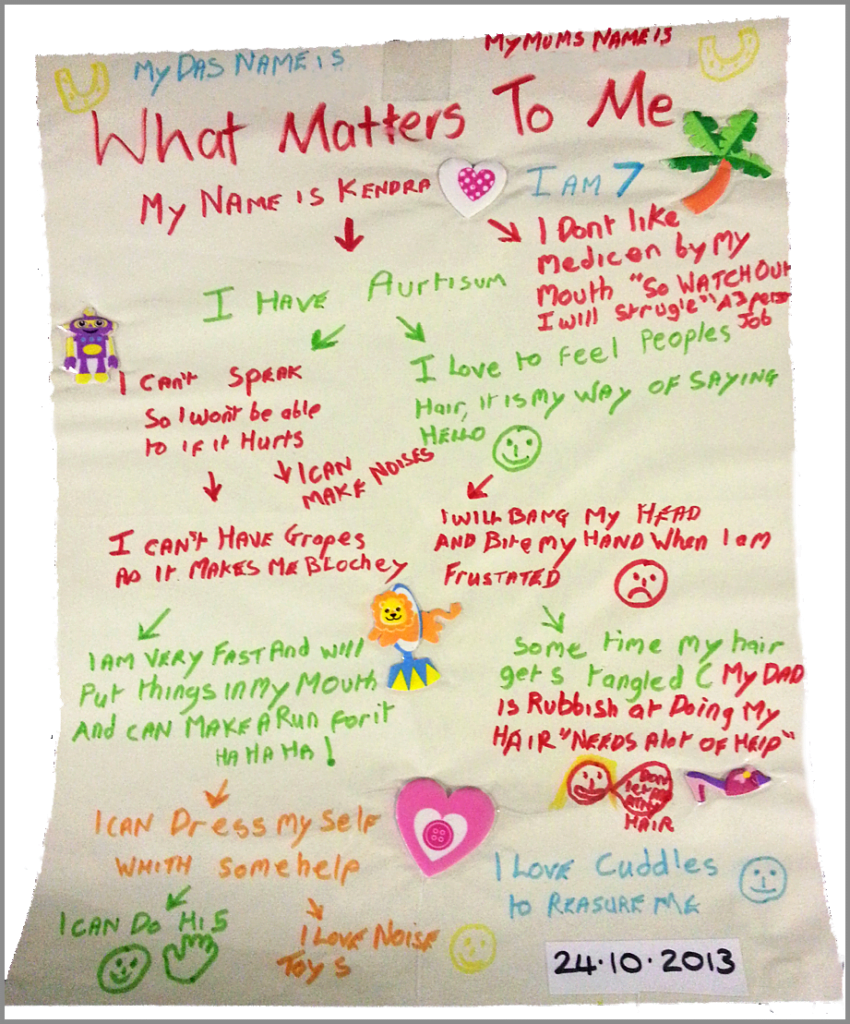 My DAS NAME iS
My MUMS NAME is
What Matters To Me
My NAME is KENDRA
I AM 7
I Dont like
medicen by my
Mouth "So WATCH OUT
I will strugle" "A 3 person
Job
I HAVE Aurtisum
I Can't SPEAK
So I won't be able
to if it Hurts
I Love to Feel Peoples
Hair, it is my WAY OF SAYING
HELLO
I CAN
MAKE NOISES
I CAN'T HAVE Grapes
AS It MAKES ME BLochey
I WILL BANG My HEAD
AND Bite my HAND When I am
FRUSTATED
I AM VERY FAST And will
Put things in My Mouth
And CAN MAKE A Run For it
HA HA HA!
Some time my hair
gets tangled ( My DAD
is Rubbish at Doing My
HAIR "NEEDS Alot OF HElP"
Dont
HAIR
I CAN Dress My Self
WHITH Some help
I LOVE Cuddles
to REASURE ME
I CAN Do Hi 5
I LOVE NOISE
ToyS
24·10·2013